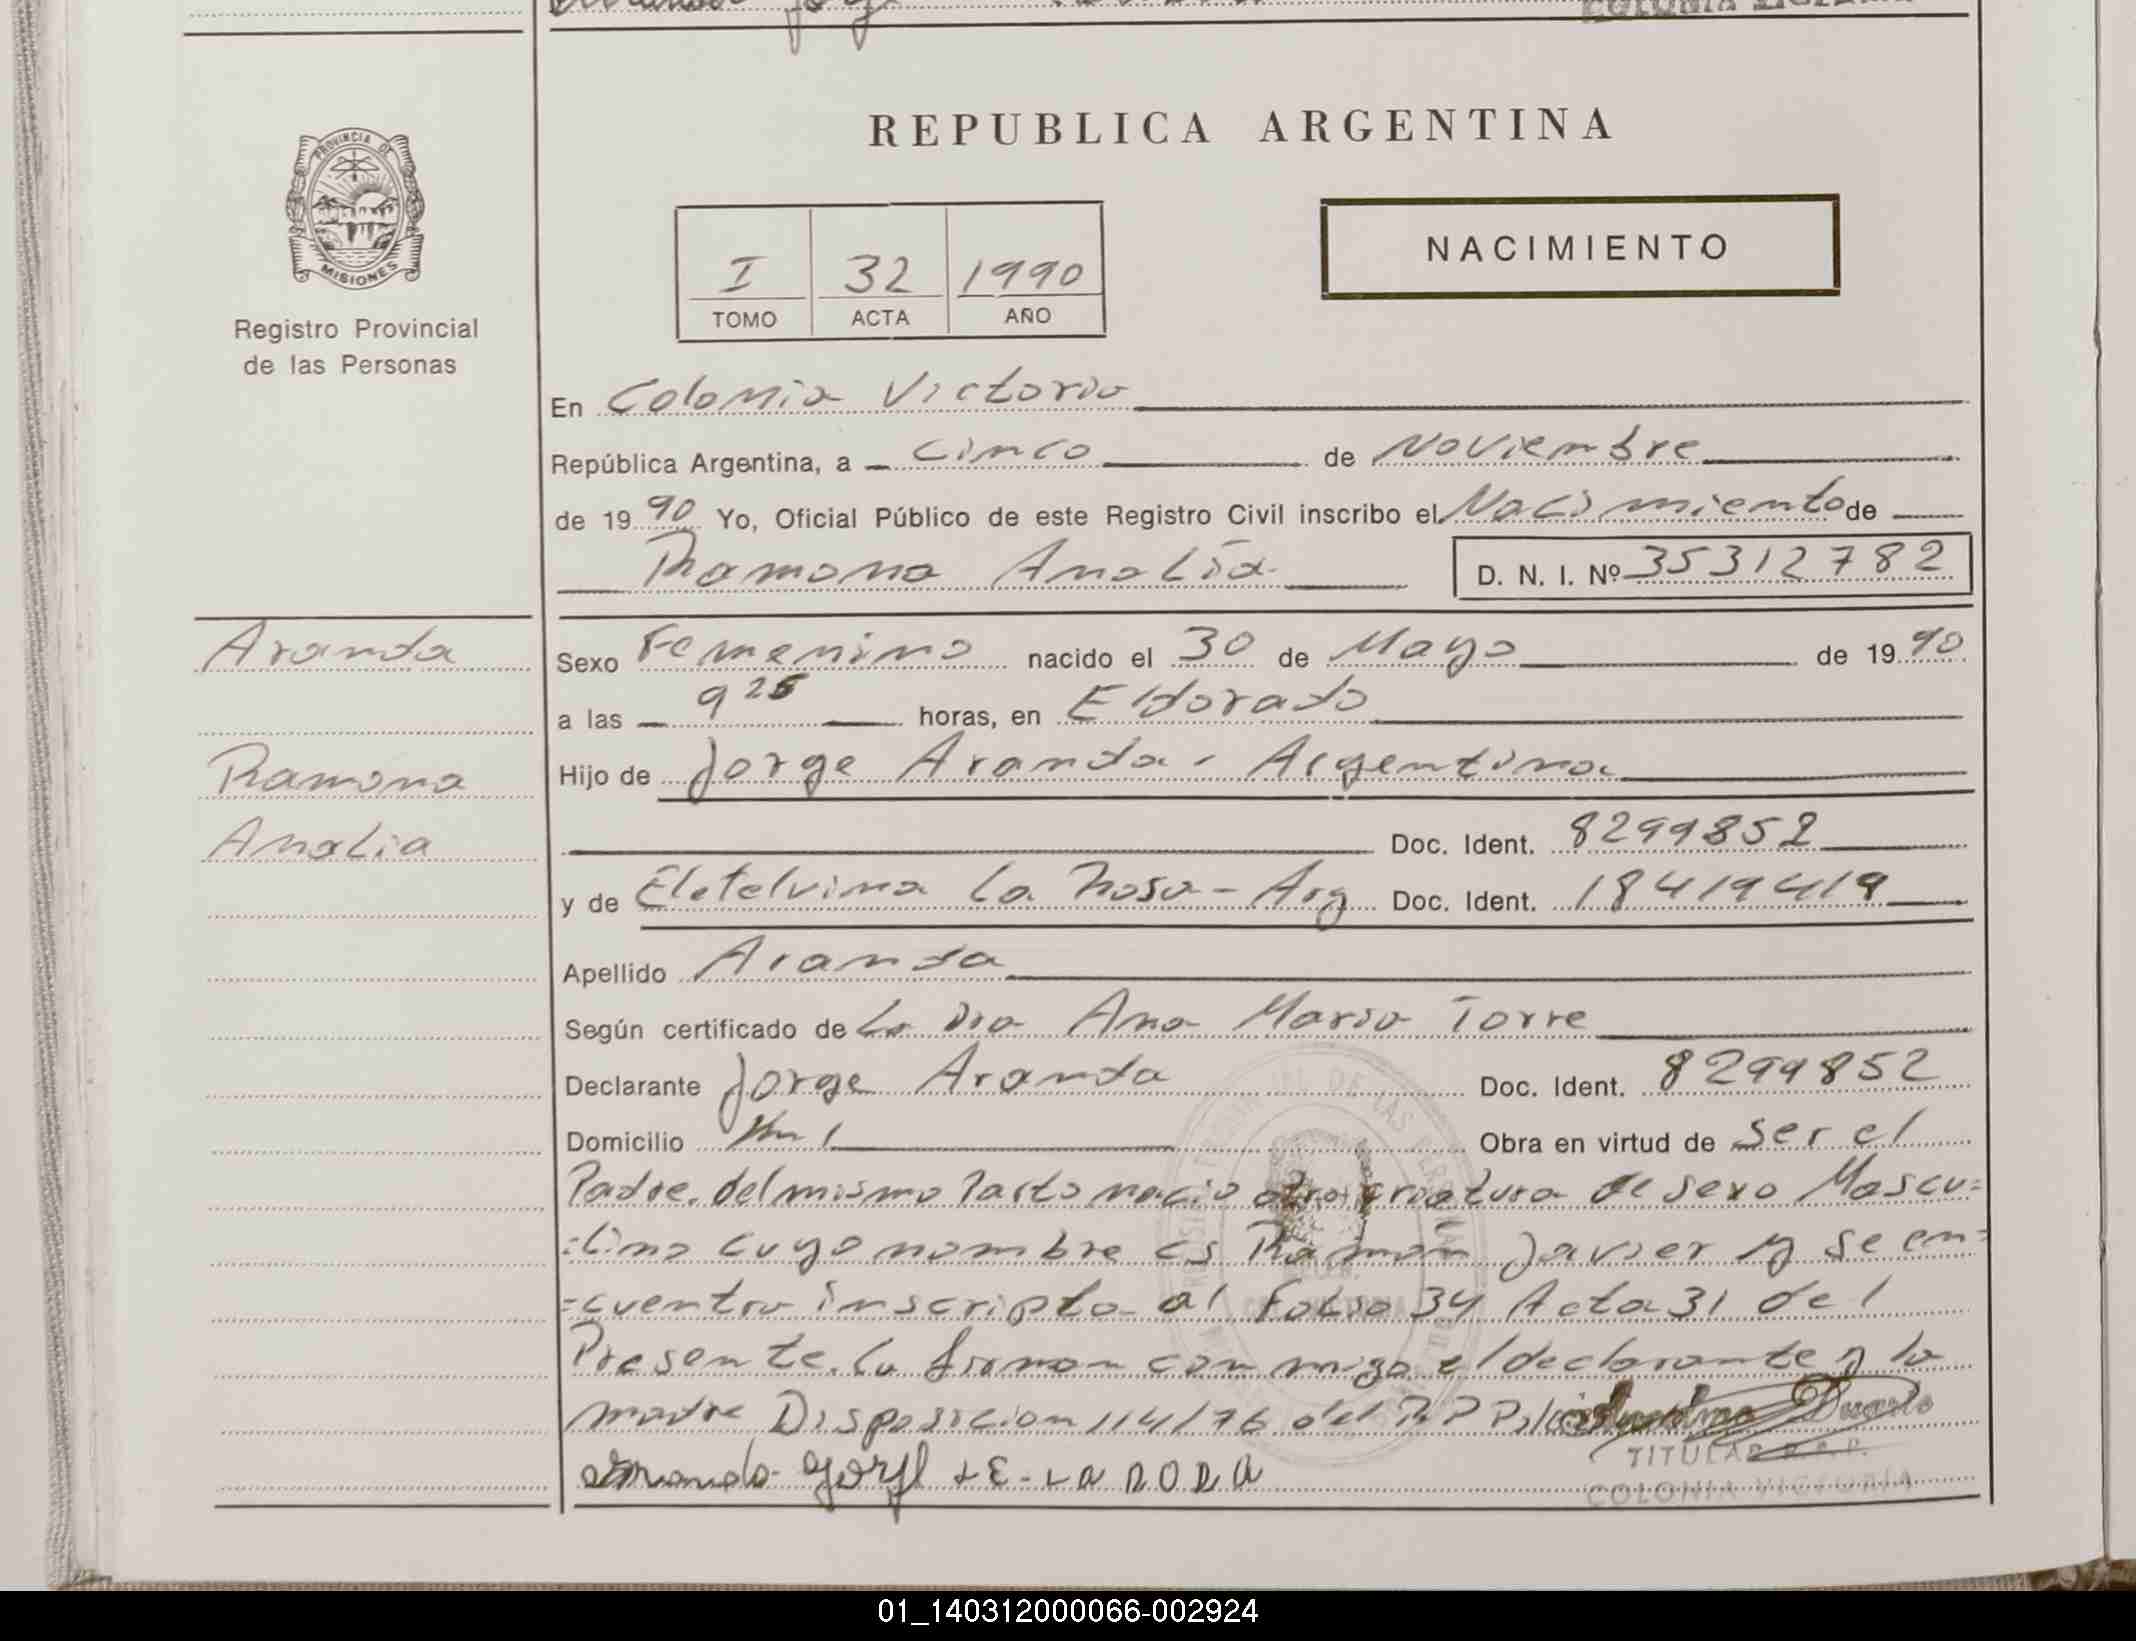 REPUBLICA ARGENTINA
PROVINCIA DE
MISIONES
Registro Provincial
de las Personas
I 32 1990
TOMO ACTA AÑO
NACIMIENTO
En Colonia Victoria
República Argentina, a cinco de Noviembre
de 19 90 Yo, Oficial Público de este Registro Civil inscribo el Nacimiento de
Ramona Analía D. N. I. Nº 35312782
Aranda
Ramona
Analia
Sexo Femenino nacido el 30 de Mayo de 19 90
a las 9 25 horas, en Eldorado
Hijo de Jorge Aranda - Argentina
Doc. Ident. 8299852
y de Eletelvina La Rosa - Arg Doc. Ident. 18419419
Apellido Aranda
Según certificado de La Dra Ana Maria Torre
Declarante Jorge Aranda Doc. Ident. 8299852
Domicilio Km 1 Obra en virtud de ser el
Padre. del mismo Parto nacio otra criatura de sexo Mascu=
=lino cuyo nombre es Ramón Javier y se en=
=cuentra inscripto al Folio 34 Acta 31 del
Presente. La firman conmigo el declarante y la
madre Disposicion 114/76 del R P P
LA ROSA
TITULAR R.P.P.
COLONIA VICTORIA
01_140312000066-002924